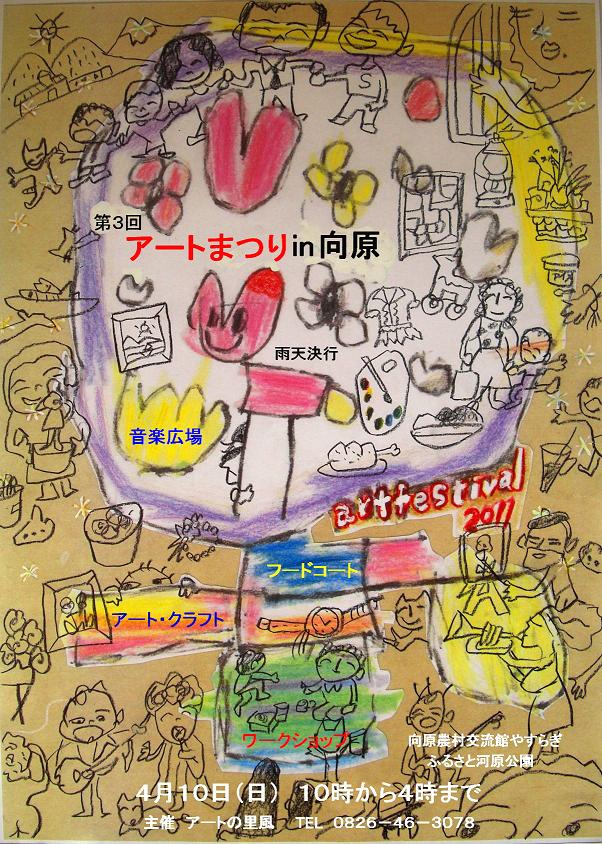 第3回
アートまつりin向原
雨天決行
音楽広場
Artfestival
2011
フードコート
アート・クラフト
ワークショップ
向原農村交流館やすらぎ
ふるさと河原公園
4月10日（日） 10時から4時まで
主催 アートの里風 TEL 0826-46-3078